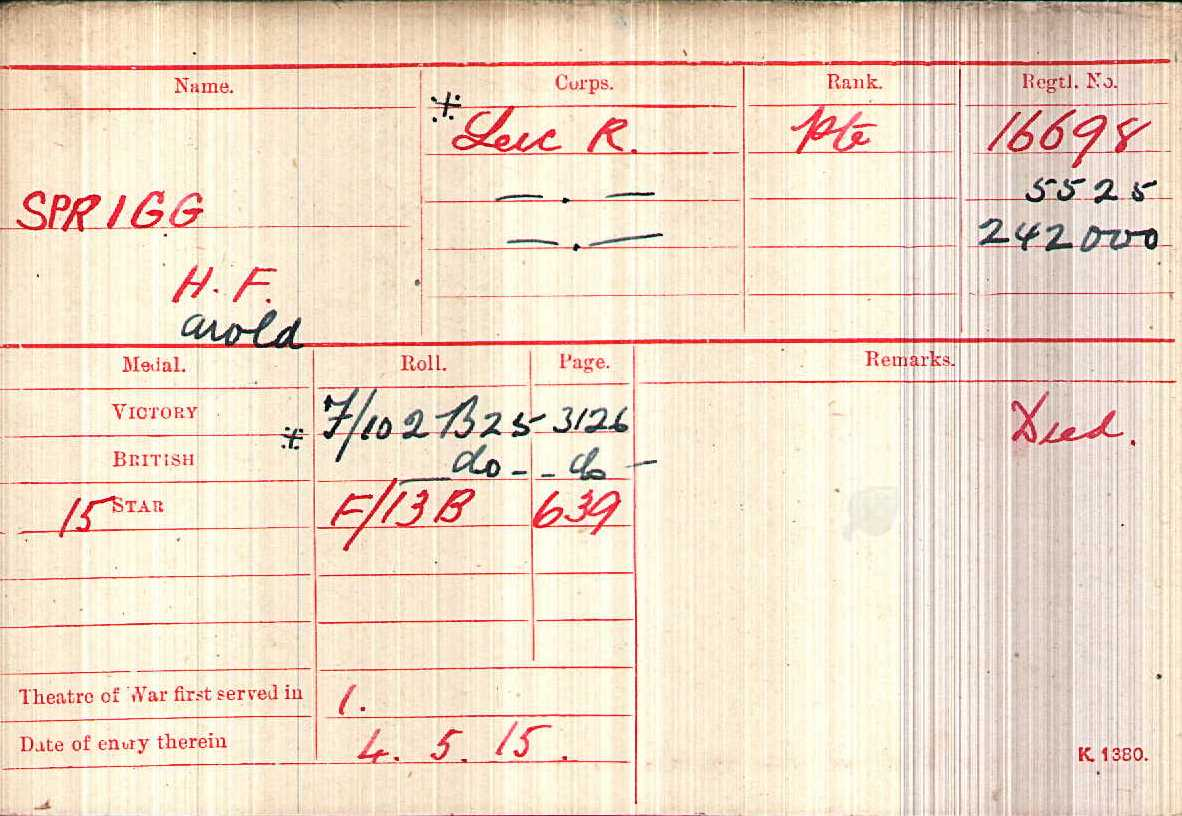 Name. Corps. Rank. Regtl. No.
* Leic R. Pte 16698
SPRIGG — . — 5525
— . — 242000
H. F.
arold
Medal. Roll. Page. Remarks.
VICTORY * F/102 B25 3126 Died.
BRITISH — do - - do -
15 STAR F/13 B 639
Theatre of War first served in 1.
Date of entry therein 4. 5. 15.
K. 1380.